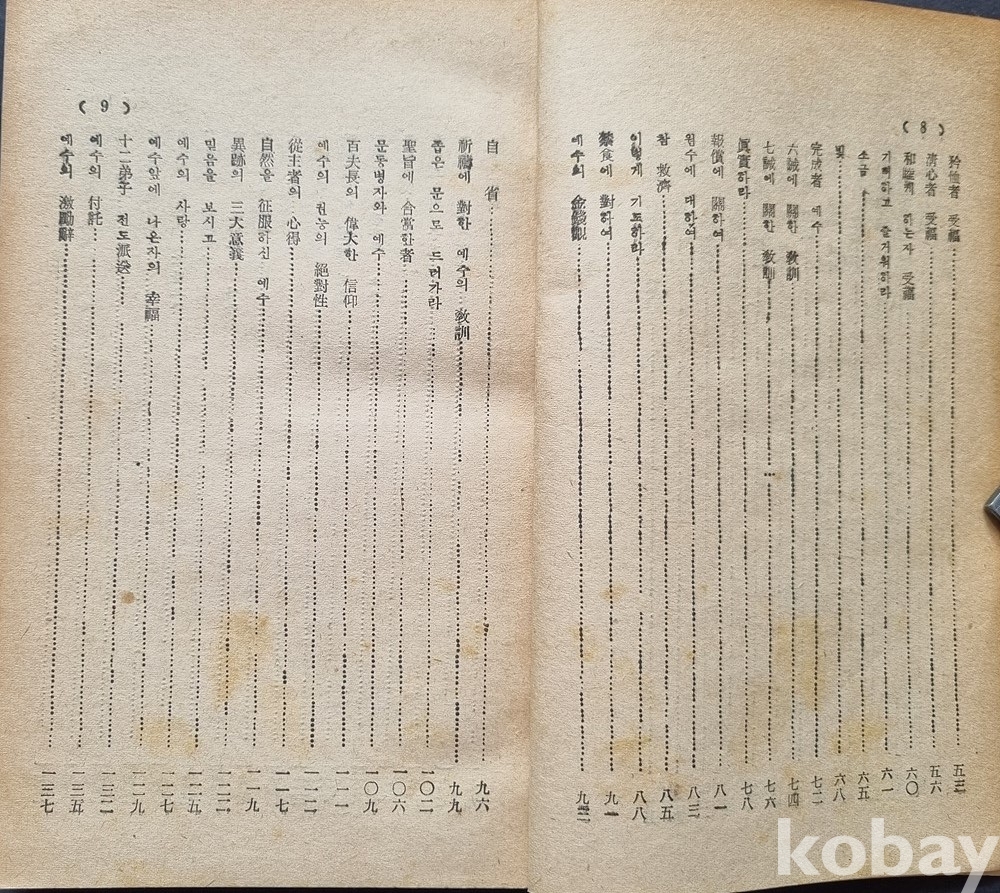 (8)
矜恤者 受福 五三
淸心者 受福 五六
和睦케 하는자 受福 六〇
기뻐하고 즐거워하라 六一
소금 六五
빛 六八
完成者 예수 七二
六誡에 關한 敎訓 七四
七誡에 關한 敎訓 七六
眞實하라 七八
報償에 關하여 八一
원수에 대하여 八三
참 救濟 八五
이렇게 기도하라 八八
禁食에 對하여 九一
예수의 金錢觀 九三
(9)
自省 九六
祈禱에 對한 예수의 敎訓 九九
좁은 문으로 드러가라 一〇二
聖旨에 合當한者 一〇六
문둥병자와 예수 一〇九
百夫長의 偉大한 信仰 一一一
예수의 권능의 絕對性 一一二
從主者의 心得 一一七
自然을 征服하신 예수 一一九
異跡의 三大意義 一二二
믿음을 보시고 一二五
예수의 사랑 一二七
예수앞에 나온자의 幸福 一二九
十二弟子 전도派送 一三二
예수의 付託 一三五
예수의 激勵辭 一三七
kobay